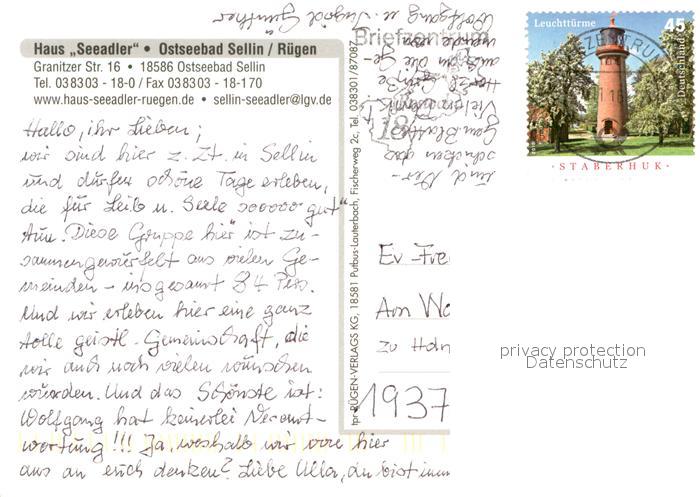 Haus „Seeadler“ • Ostseebad Sellin / Rügen
Granitzer Str. 16 • 18586 Ostseebad Sellin
Tel. 038303 - 18-0 / Fax 038303 - 18-170
www.haus-seeadler-ruegen.de • sellin-seeadler@lgv.de
Hallo, ihr Lieben,
wir sind hier z. Zt. in Sellin
und dürfen schöne Tage erleben,
die für Leib u. Seele "sooooo gut"
tun. Diese Gruppe hier ist zu-
sammengewürfelt aus vielen Ge-
meinden - insgesamt 84 Pers.
Und wir erleben hier eine ganz
tolle geistl. Gemeinschaft, die
wir auch noch vielen wünschen
würden. Und das Schönste ist:
Wolfgang hat keinerlei Verant-
wortung!!! Ja, weshalb wir von hier
aus an euch denken? Liebe Ulla, du bist imm
und
schicken das
Gen. Blatt
Herzl. Grüße
Wolfgang u. Ingrid Günther
tpr RÜGEN-VERLAGS KG, 18581 Putbus-Lauterbach, Fischerweg 2c, Tel. 038301/87087
Briefzentrum
18
Leuchttürme
45
Deutschland
STABERHUK
Ev-Fre
Am Wa
zu Hdn
1937
privacy protection
Datenschutz